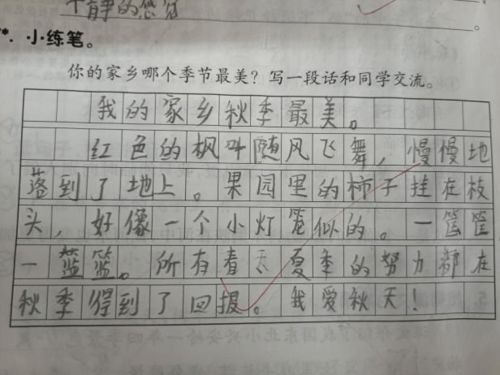 小练笔。
你的家乡哪个季节最美？写一段话和同学交流。
我的家乡秋季最美。
红色的枫叶随风飞舞，慢慢地
落到了地上。果园里的柿子挂在枝
头，好像一个小灯笼似的。一筐筐
一篮篮。所有春天夏季的努力都在
秋季得到了回报。我爱秋天！